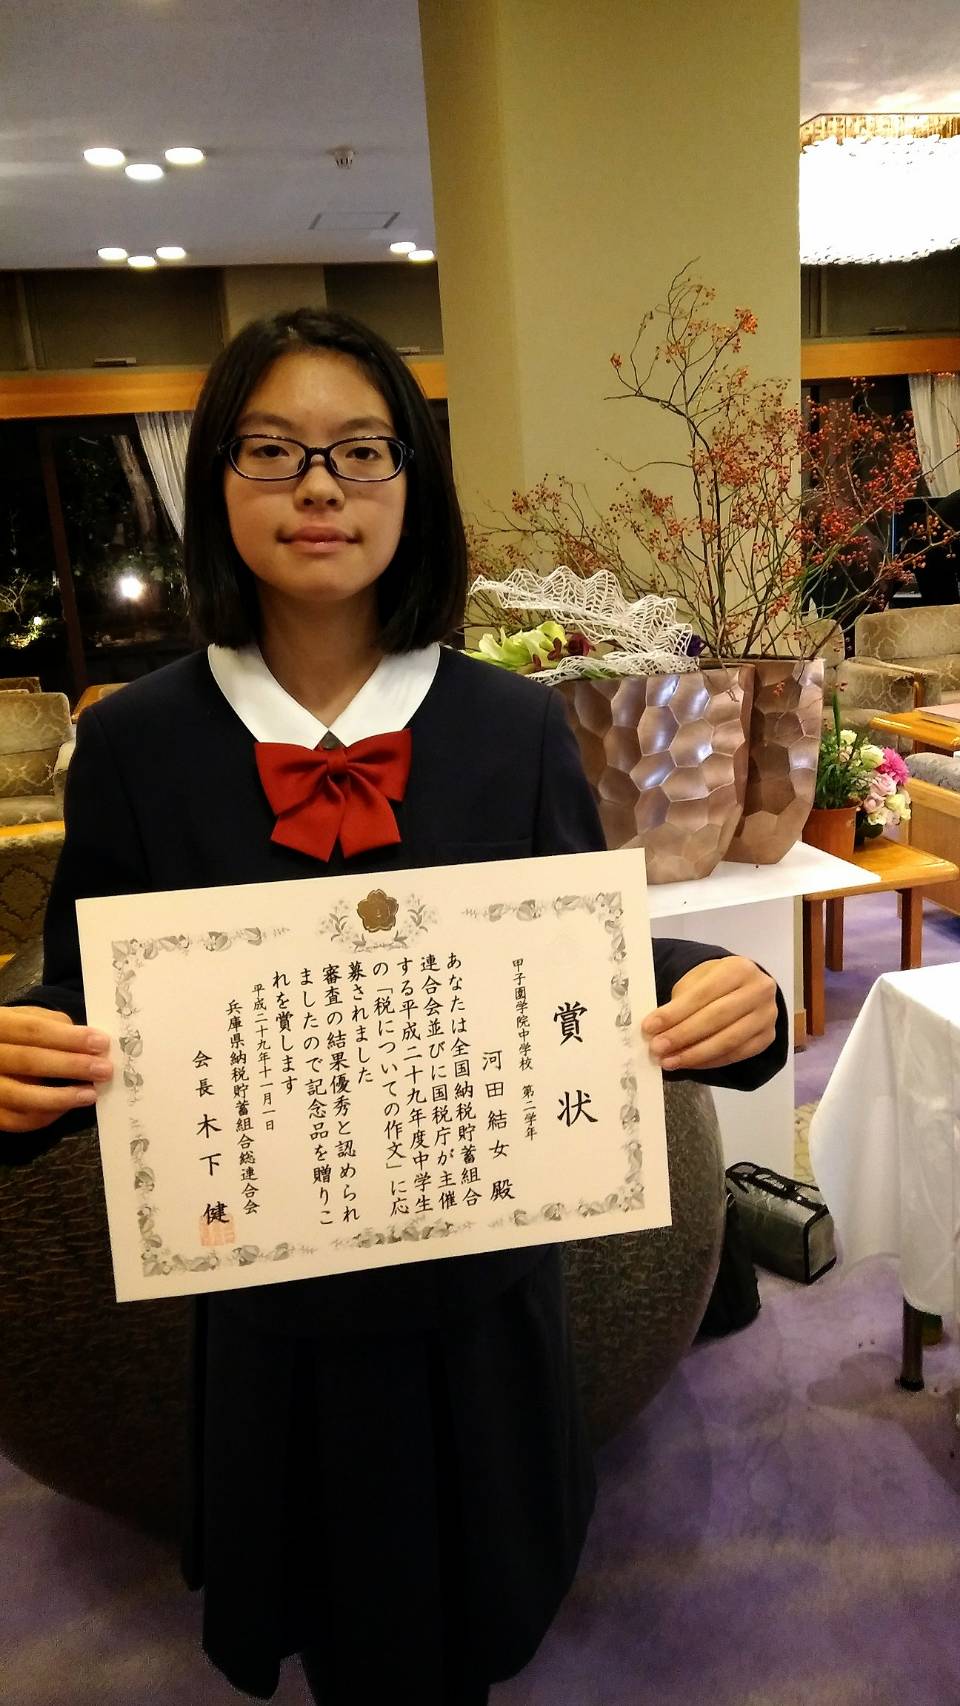 賞状
甲子園学院中学校 第二学年
河田結女殿
あなたは全国納税貯蓄組合
連合会並びに国税庁が主催
する平成二十九年度中学生
の「税についての作文」に応
募されました
審査の結果優秀と認められ
ましたので記念品を贈りこ
れを賞します
平成二十九年十一月一日
兵庫県納税貯蓄組合総連合会
会長木下健